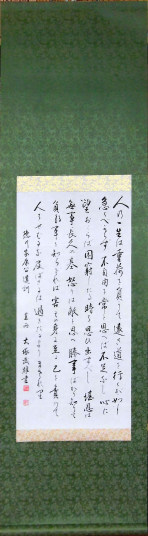 人の一生は重荷を負て遠き道を行くが如し
急ぐべからず不自由を常と思へば不足なし心に
望おこらば困窮したる時を思ひ出すべし堪忍は
無事長久の基怒は敵と思へ勝事ばかり知りて
負る事を知らざれば害其身に至る己を責て
人をせむるな及ばざるは過たるよりまされり
徳川家康公遺訓 書